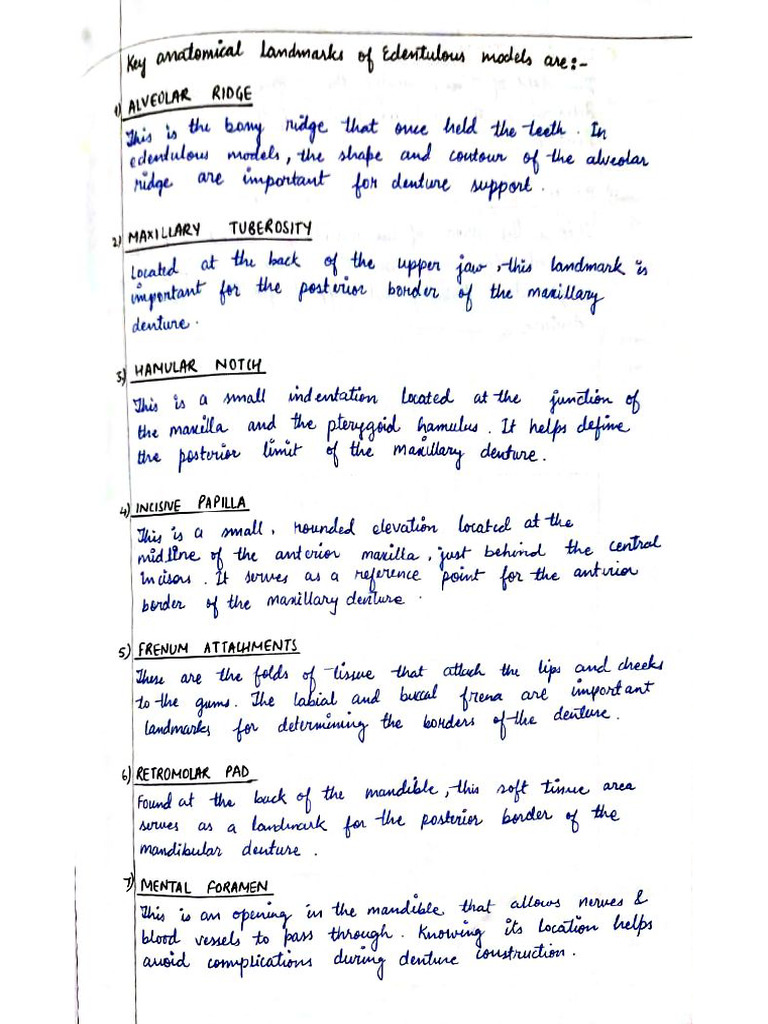 Key anatomical landmarks of Edentulous models are:-
1) ALVEOLAR RIDGE
This is the bony ridge that once held the teeth. In
edentulous models, the shape and contour of the alveolar
ridge are important for denture support.
2) MAXILLARY TUBEROSITY
Located at the back of the upper jaw, this landmark is
important for the posterior border of the maxillary
denture.
3) HAMULAR NOTCH
This is a small indentation located at the junction of
the maxilla and the pterygoid hamulus. It helps define
the posterior limit of the maxillary denture.
4) INCISIVE PAPILLA
This is a small, rounded elevation located at the
midline of the anterior maxilla, just behind the central
incisors. It serves as a reference point for the anterior
border of the maxillary denture.
5) FRENUM ATTACHMENTS
These are the folds of tissue that attach the lips and cheeks
to the gums. The labial and buccal frena are important
landmarks for determining the borders of the denture.
6) RETROMOLAR PAD
Found at the back of the mandible, this soft tissue area
serves as a landmark for the posterior border of the
mandibular denture.
7) MENTAL FORAMEN
This is an opening in the mandible that allows nerves &
blood vessels to pass through. Knowing its location helps
avoid complications during denture construction.